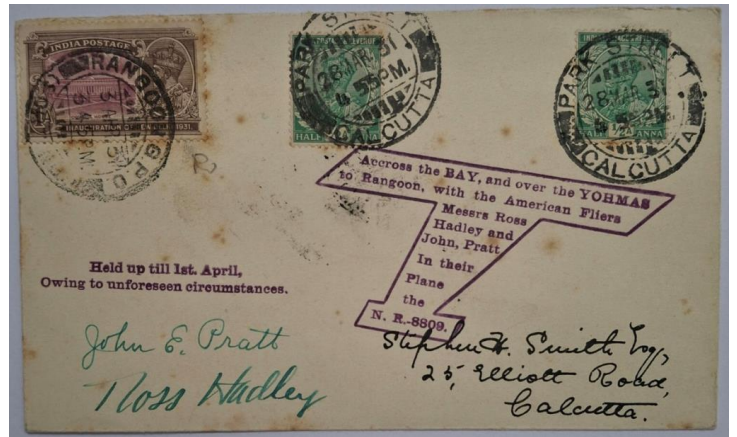 INDIA POSTAGE
RANGOON G.P.O.
INAUGURATION OF NEW DELHI 1931.
PARK STREET
28 MAR. 31
4.55 P.M.
CALCUTTA
HALF
PARK STREET
28 MAR. 31
CALCUTTA
HALF ANNA
Accross the BAY, and over the YOHMAS
to Rangoon, with the American Fliers
Messrs Ross
Hadley and
John, Pratt
In their
Plane
the
N. R.-8809.
Held up till 1st. April,
Owing to unforeseen circumstances.
John E. Pratt
Ross Hadley
Stephen H. Smith Esq,
25, Elliott Road,
Calcutta.